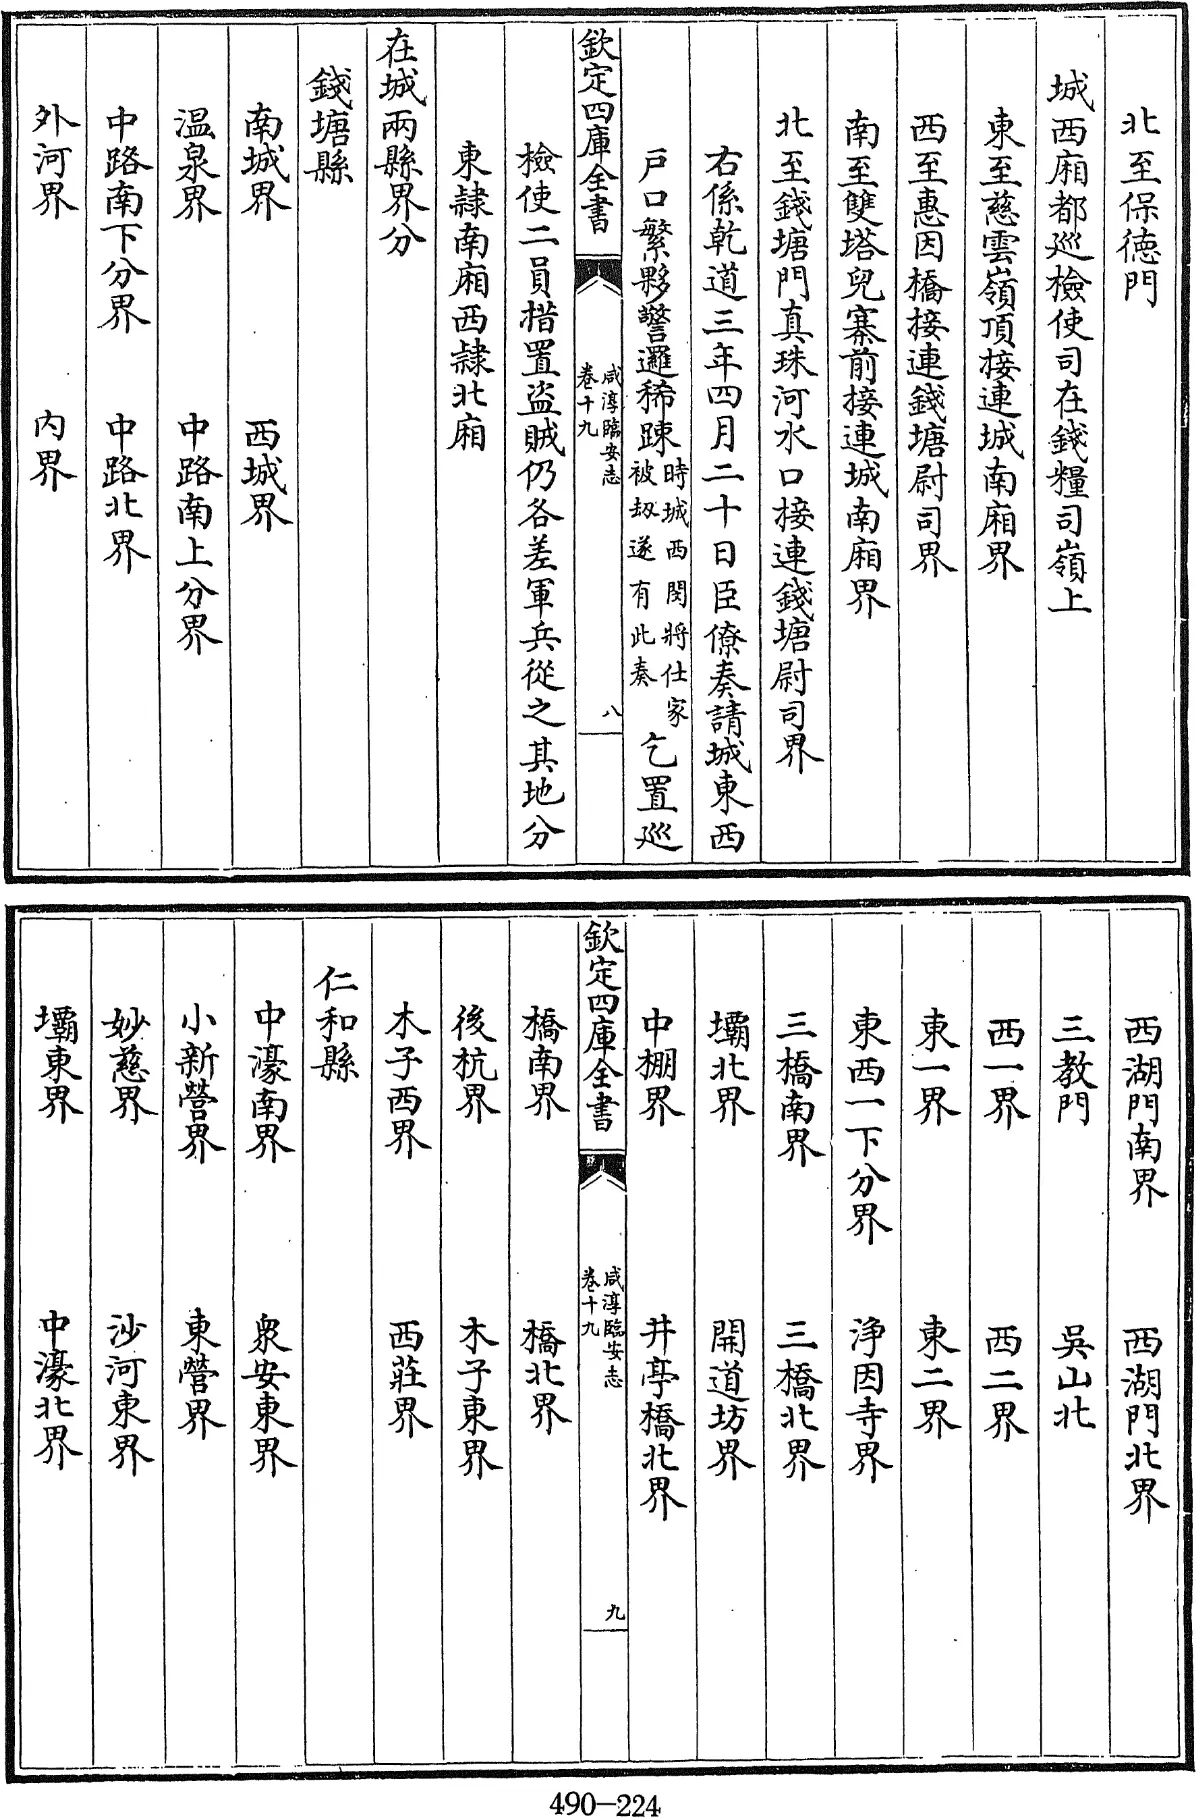 北至保德門
城西廂都巡檢使司在錢糧司嶺上
東至慈雲嶺頂接連城南廂界
西至惠因橋接連錢塘尉司界
南至雙塔兒寨前接連城南廂界
北至錢塘門真珠河水口接連錢塘尉司界
右係乾道三年四月二十日臣僚奏請城東西
戶口繁夥警邏稀踈時城西閔將仕家被刼遂有此奏乞置巡
欽定四庫全書
咸淳臨安志
卷十九
八
檢使二員措置盜賊仍各差軍兵從之其地分
東隷南廂西隷北廂
在城兩縣界分
錢塘縣
南城界 西城界
温泉界 中路南上分界
中路南下分界 中路北界
外河界 内界
西湖門南界 西湖門北界
三教門 吳山北
西一界 西二界
東一界 東二界
東西一下分界 淨因寺界
三橋南界 三橋北界
壩北界 開道坊界
中棚界 井亭橋北界
欽定四庫全書
咸淳臨安志
卷十九
九
橋南界 橋北界
後杭界 木子東界
木子西界 西莊界
仁和縣
中濠南界 衆安東界
小新營界 東營界
妙慈界 沙河東界
壩東界 中濠北界
490-224